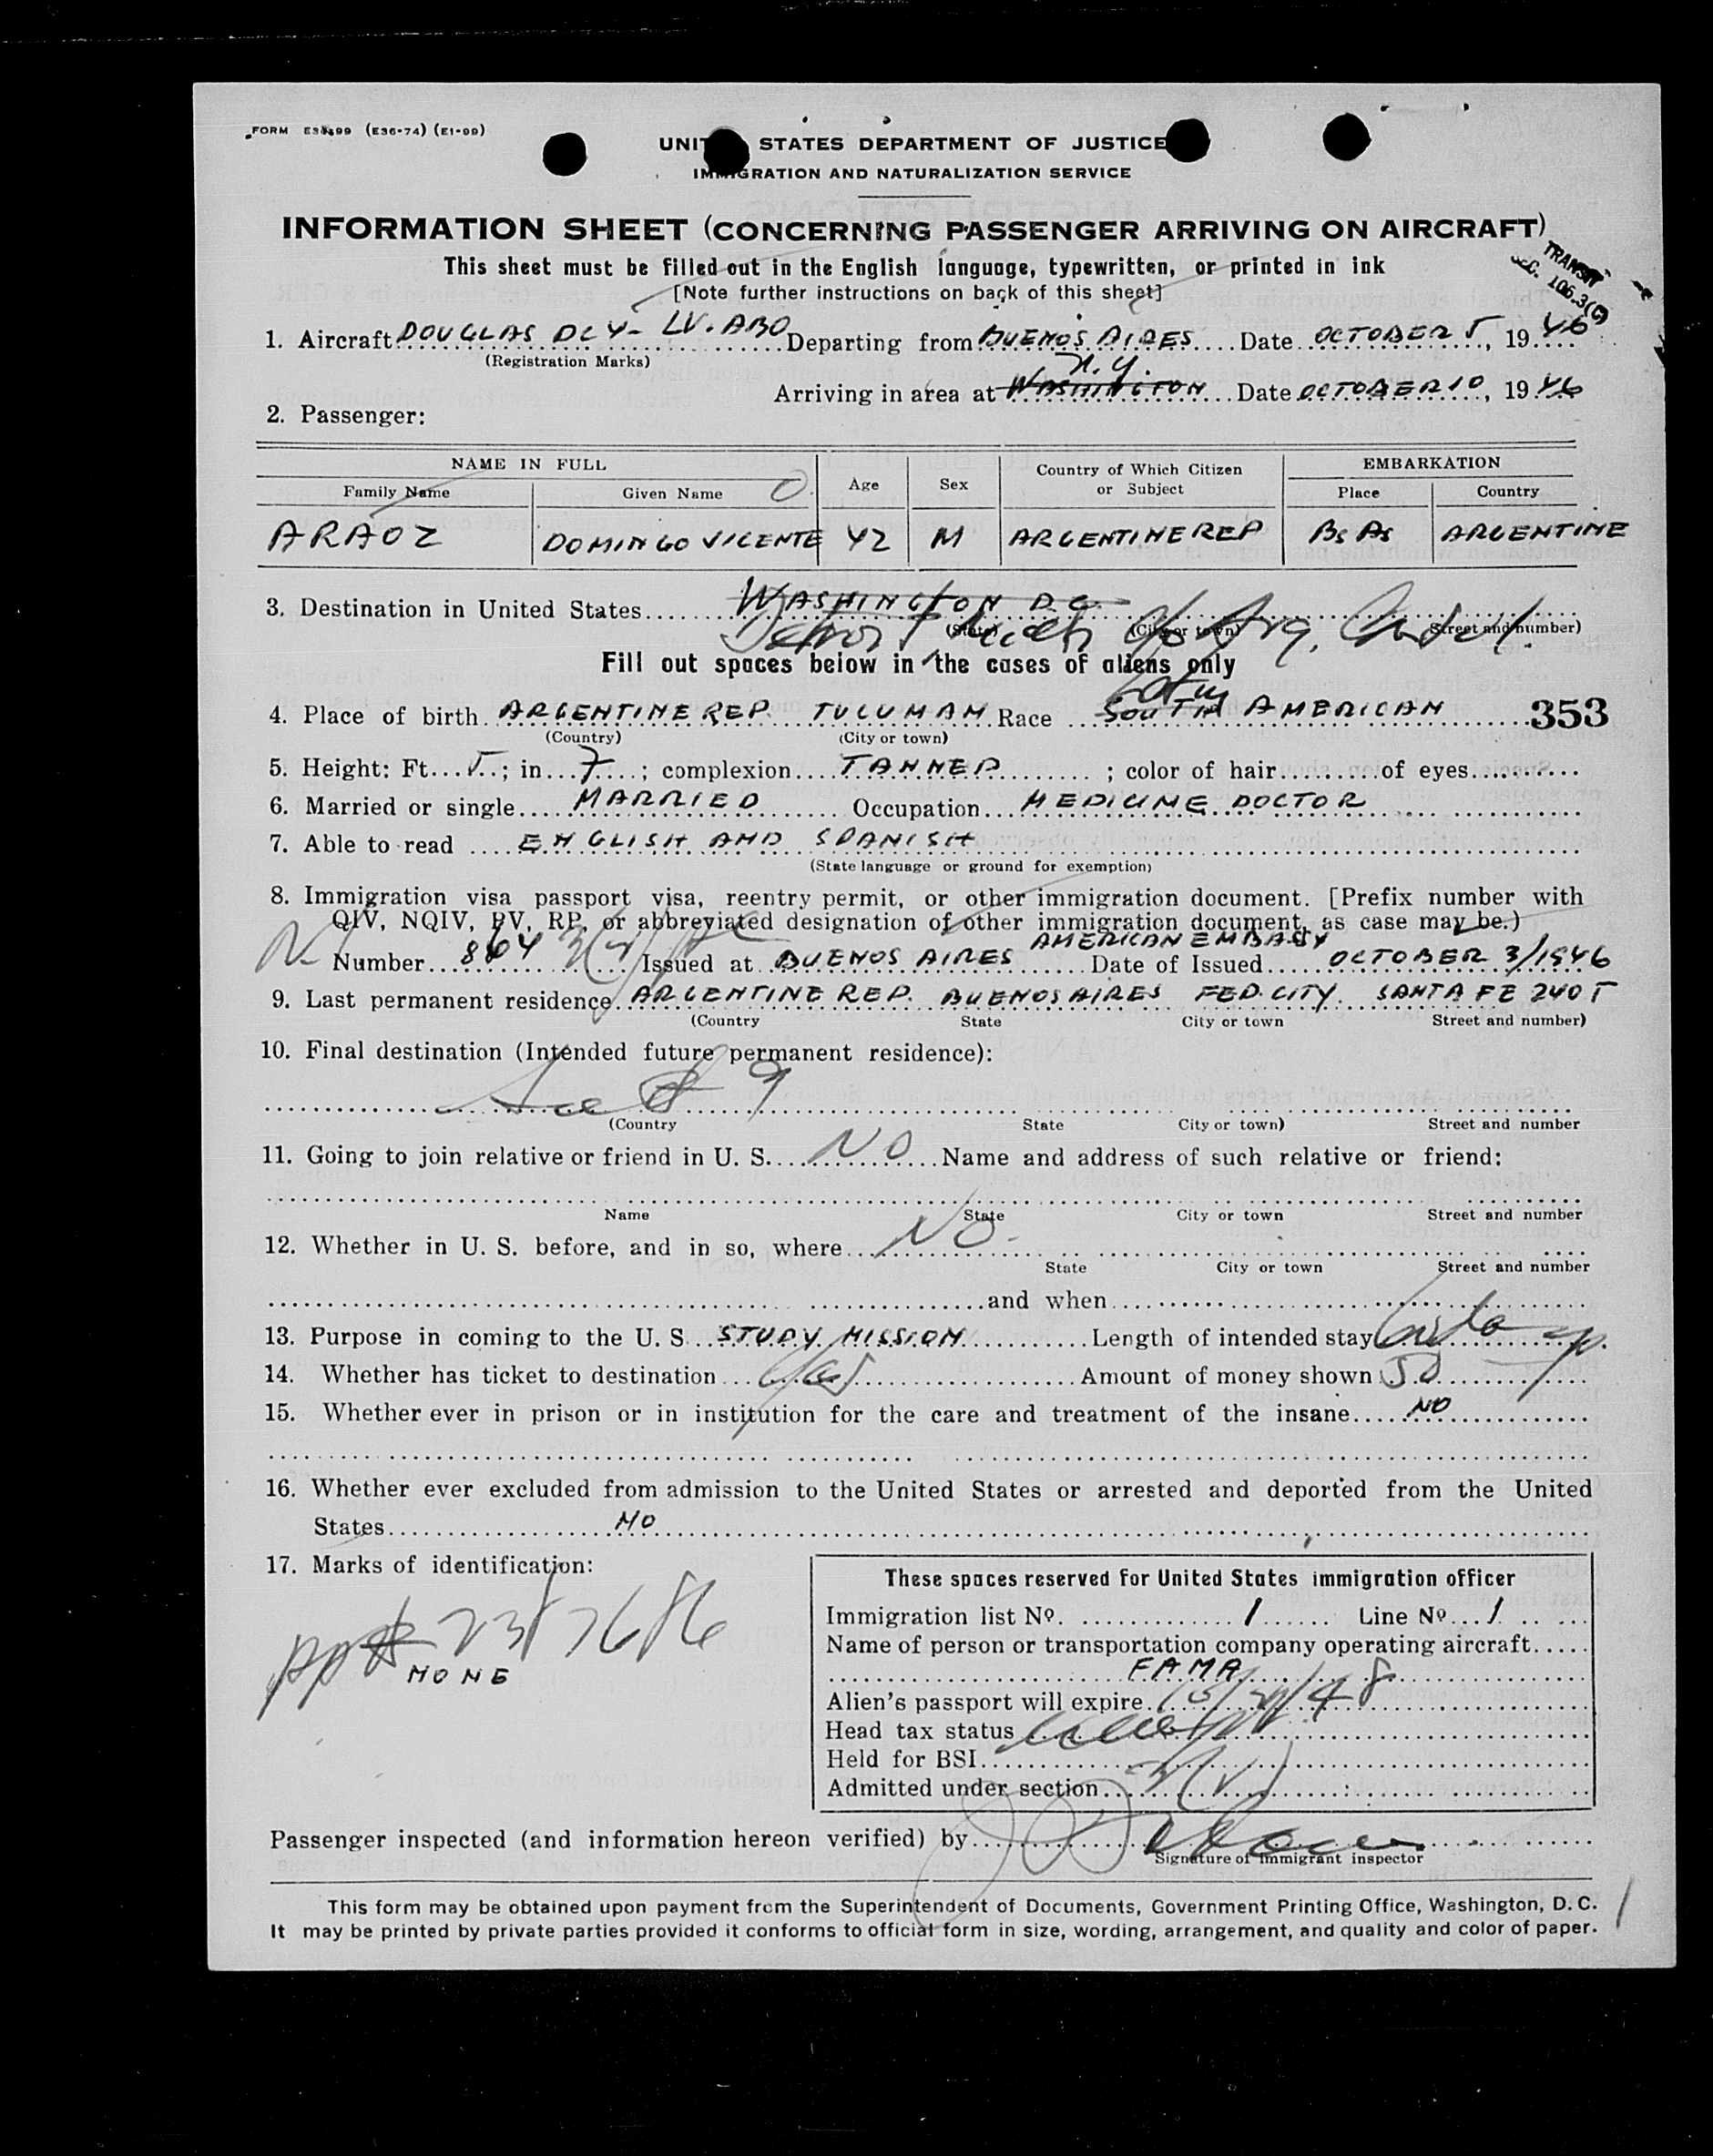 FORM (E36-74) (E1-99)
STATES DEPARTMENT OF JUSTICE
IMMIGRATION AND NATURALIZATION SERVICE
INFORMATION SHEET (CONCERNING PASSENGER ARRIVING ON AIRCRAFT)
This sheet must be filled out in the English language, typewritten, or printed in ink
[Note further instructions on back of this sheet]
TRANSIT
SEC. 106.3(C)
1. Aircraft DOUGLAS DC4- LV. ABO Departing from BUENOS AIRES Date OCTOBER 5, 1946
(Registration Marks)
N.Y.
Arriving in area at WASHINGTON Date OCTOBER 10, 1946
2. Passenger:
NAME IN FULL Age Sex Country of Which Citizen or Subject EMBARKATION
Family Name Given Name Place Country
ARAOZ DOMINGO VICENTE 42 M ARGENTINE REP Bs As ARGENTINE
3. Destination in United States WASHINGTON D.C.
(State) (City or town) Street and number)
Detroit Mich c/o Arg. Consul.
Fill out spaces below in the cases of aliens only
Latin
4. Place of birth ARGENTINE REP TUCUMAN Race SOUTH AMERICAN 353
(Country) (City or town)
5. Height: Ft. 5; in. 7; complexion TANNED; color of hair of eyes
6. Married or single MARRIED Occupation MEDICINE DOCTOR
7. Able to read ENGLISH AND SPANISH
(State language or ground for exemption)
8. Immigration visa passport visa, reentry permit, or other immigration document. [Prefix number with
QIV, NQIV, PV, RP, or abbreviated designation of other immigration document, as case may be.)
AMERICAN EMBASY
Number 864 Issued at BUENOS AIRES Date of Issued OCTOBER 3/1946
9. Last permanent residence ARGENTINE REP. BUENOS AIRES FED. CITY. SANTA FE 2405
(Country State City or town Street and number)
10. Final destination (Intended future permanent residence):
See # 9
(Country State City or town) Street and number
11. Going to join relative or friend in U. S. NO Name and address of such relative or friend:
Name State City or town Street and number
12. Whether in U. S. before, and in so, where NO
State City or town Street and number
and when
13. Purpose in coming to the U. S. STUDY MISSION Length of intended stay
14. Whether has ticket to destination Yes Amount of money shown 50
15. Whether ever in prison or in institution for the care and treatment of the insane NO
16. Whether ever excluded from admission to the United States or arrested and deported from the United
States NO
17. Marks of identification:
NONE
These spaces reserved for United States immigration officer
Immigration list No. 1 Line No. 1
Name of person or transportation company operating aircraft
FAMA
Alien's passport will expire
Head tax status
Held for BSI
Admitted under section
Passenger inspected (and information hereon verified) by
Signature of Immigrant inspector
This form may be obtained upon payment from the Superintendent of Documents, Government Printing Office, Washington, D. C.
It may be printed by private parties provided it conforms to official form in size, wording, arrangement, and quality and color of paper.